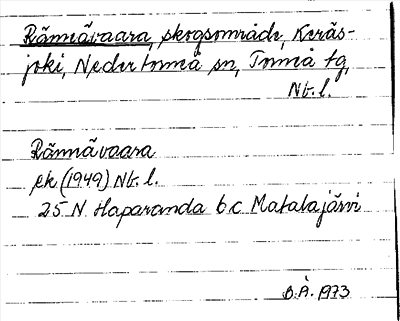 Rännävaara, skogsområde, Keräs-
joki, Nedertorneå sn, Torneå tg,
Nb. l.
Rännävaara
ek (1949) Nb. l.
25 N Haparanda b c Matalajärvi
B.Å. 1973